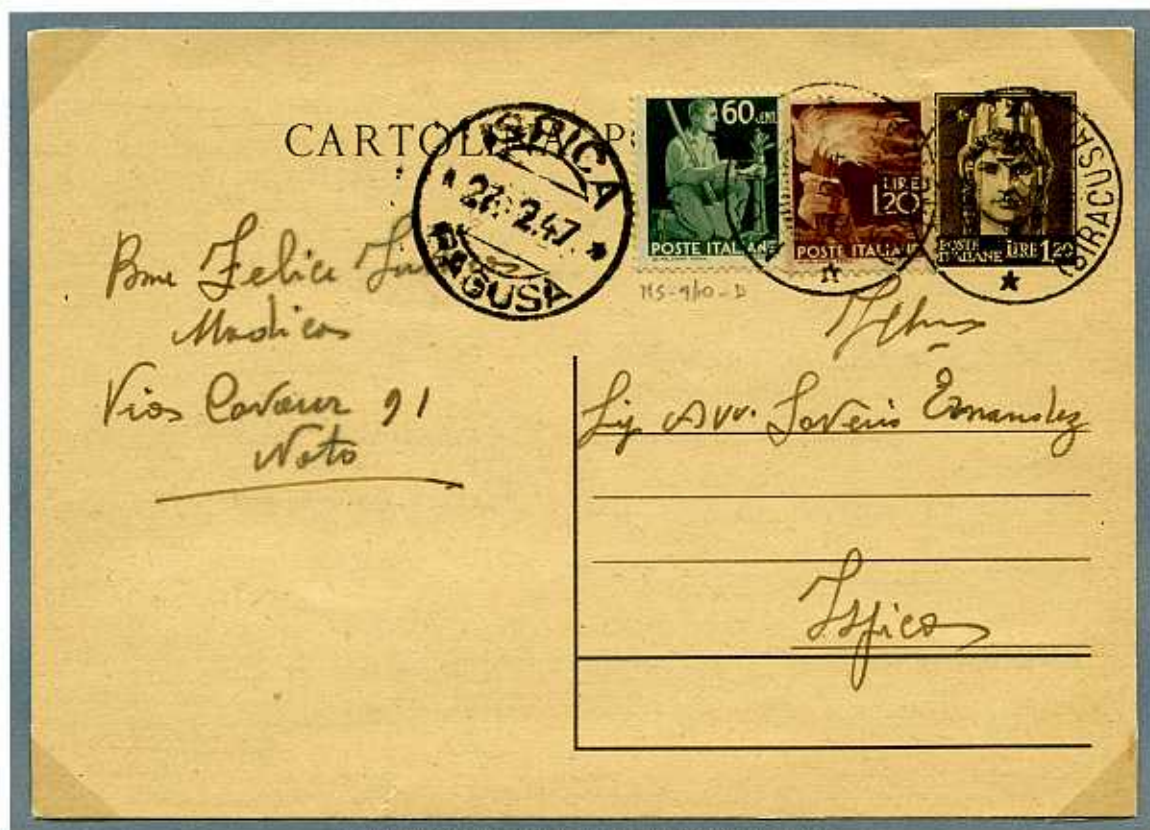 CARTOLINA
ISPICA
27 2.47
RAGUSA
60 CENT.
POSTE ITALIANE
LIRE 1,20
POSTE ITALIANE
POSTE ITALIANE LIRE 1,20
(SIRACUSA
MS-9/10-D
Felice
Modica
Via Cavour 91
Noto
Sig Avv. Saverio Ernandez
Ispica